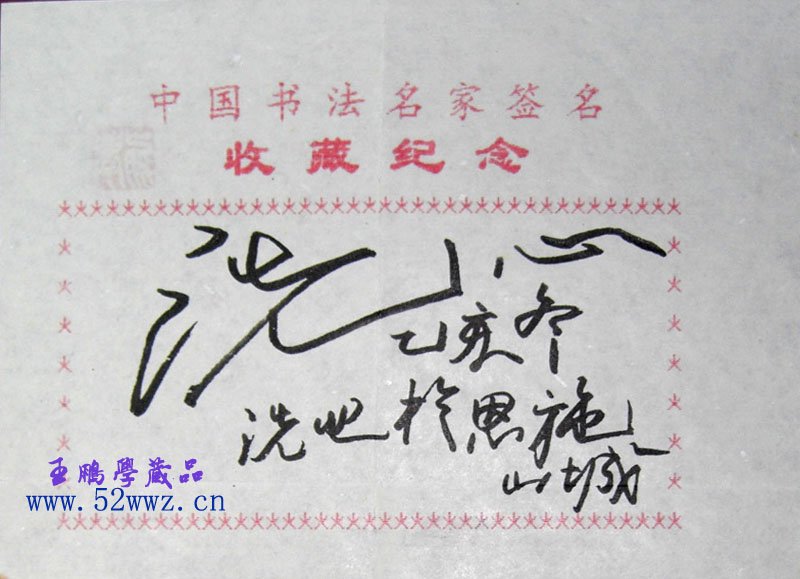 中国书法名家签名
收藏纪念
洗心
乙亥冬
洗 於恩施
山城
王鵬學藏品
www.52wwz.cn